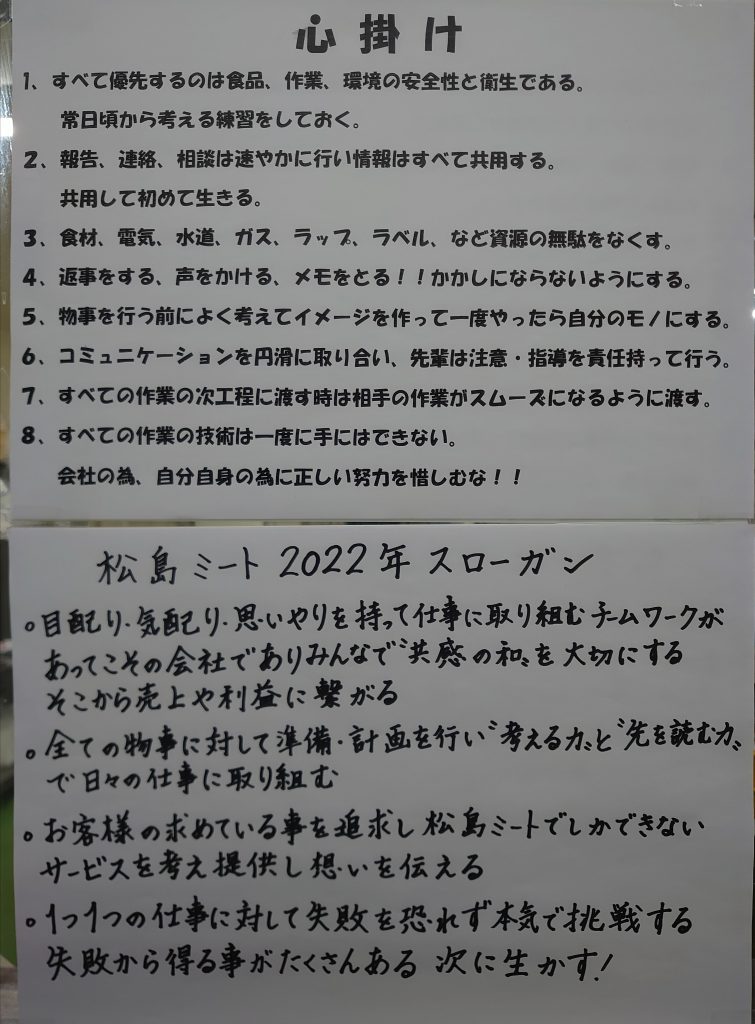 心掛け
1、すべて優先するのは食品、作業、環境の安全性と衛生である。
常日頃から考える練習をしておく。
2、報告、連絡、相談は速やかに行い情報はすべて共用する。
共用して初めて生きる。
3、食材、電気、水道、ガス、ラップ、ラベル、など資源の無駄をなくす。
4、返事をする、声をかける、メモをとる！！かかしにならないようにする。
5、物事を行う前によく考えてイメージを作って一度やったら自分のモノにする。
6、コミュニケーションを円滑に取り合い、先輩は注意・指導を責任持って行う。
7、すべての作業の次工程に渡す時は相手の作業がスムーズになるように渡す。
8、すべての作業の技術は一度に手にはできない。
会社の為、自分自身の為に正しい努力を惜しむな！！
松島ミート 2022年 スローガン
。目配り・気配り・思いやりを持って仕事に取り組むチームワークが
あってこその会社でありみんなで〝共感の和〟を大切にする
そこから売上や利益に繋がる
。全ての物事に対して準備・計画を行い〝考える力〟と〝先を読む力〟
で日々の仕事に取り組む
。お客様の求めている事を追求し松島ミートでしかできない
サービスを考え提供し想いを伝える
。1つ1つの仕事に対して失敗を恐れず本気で挑戦する
失敗から得る事がたくさんある 次に生かす!